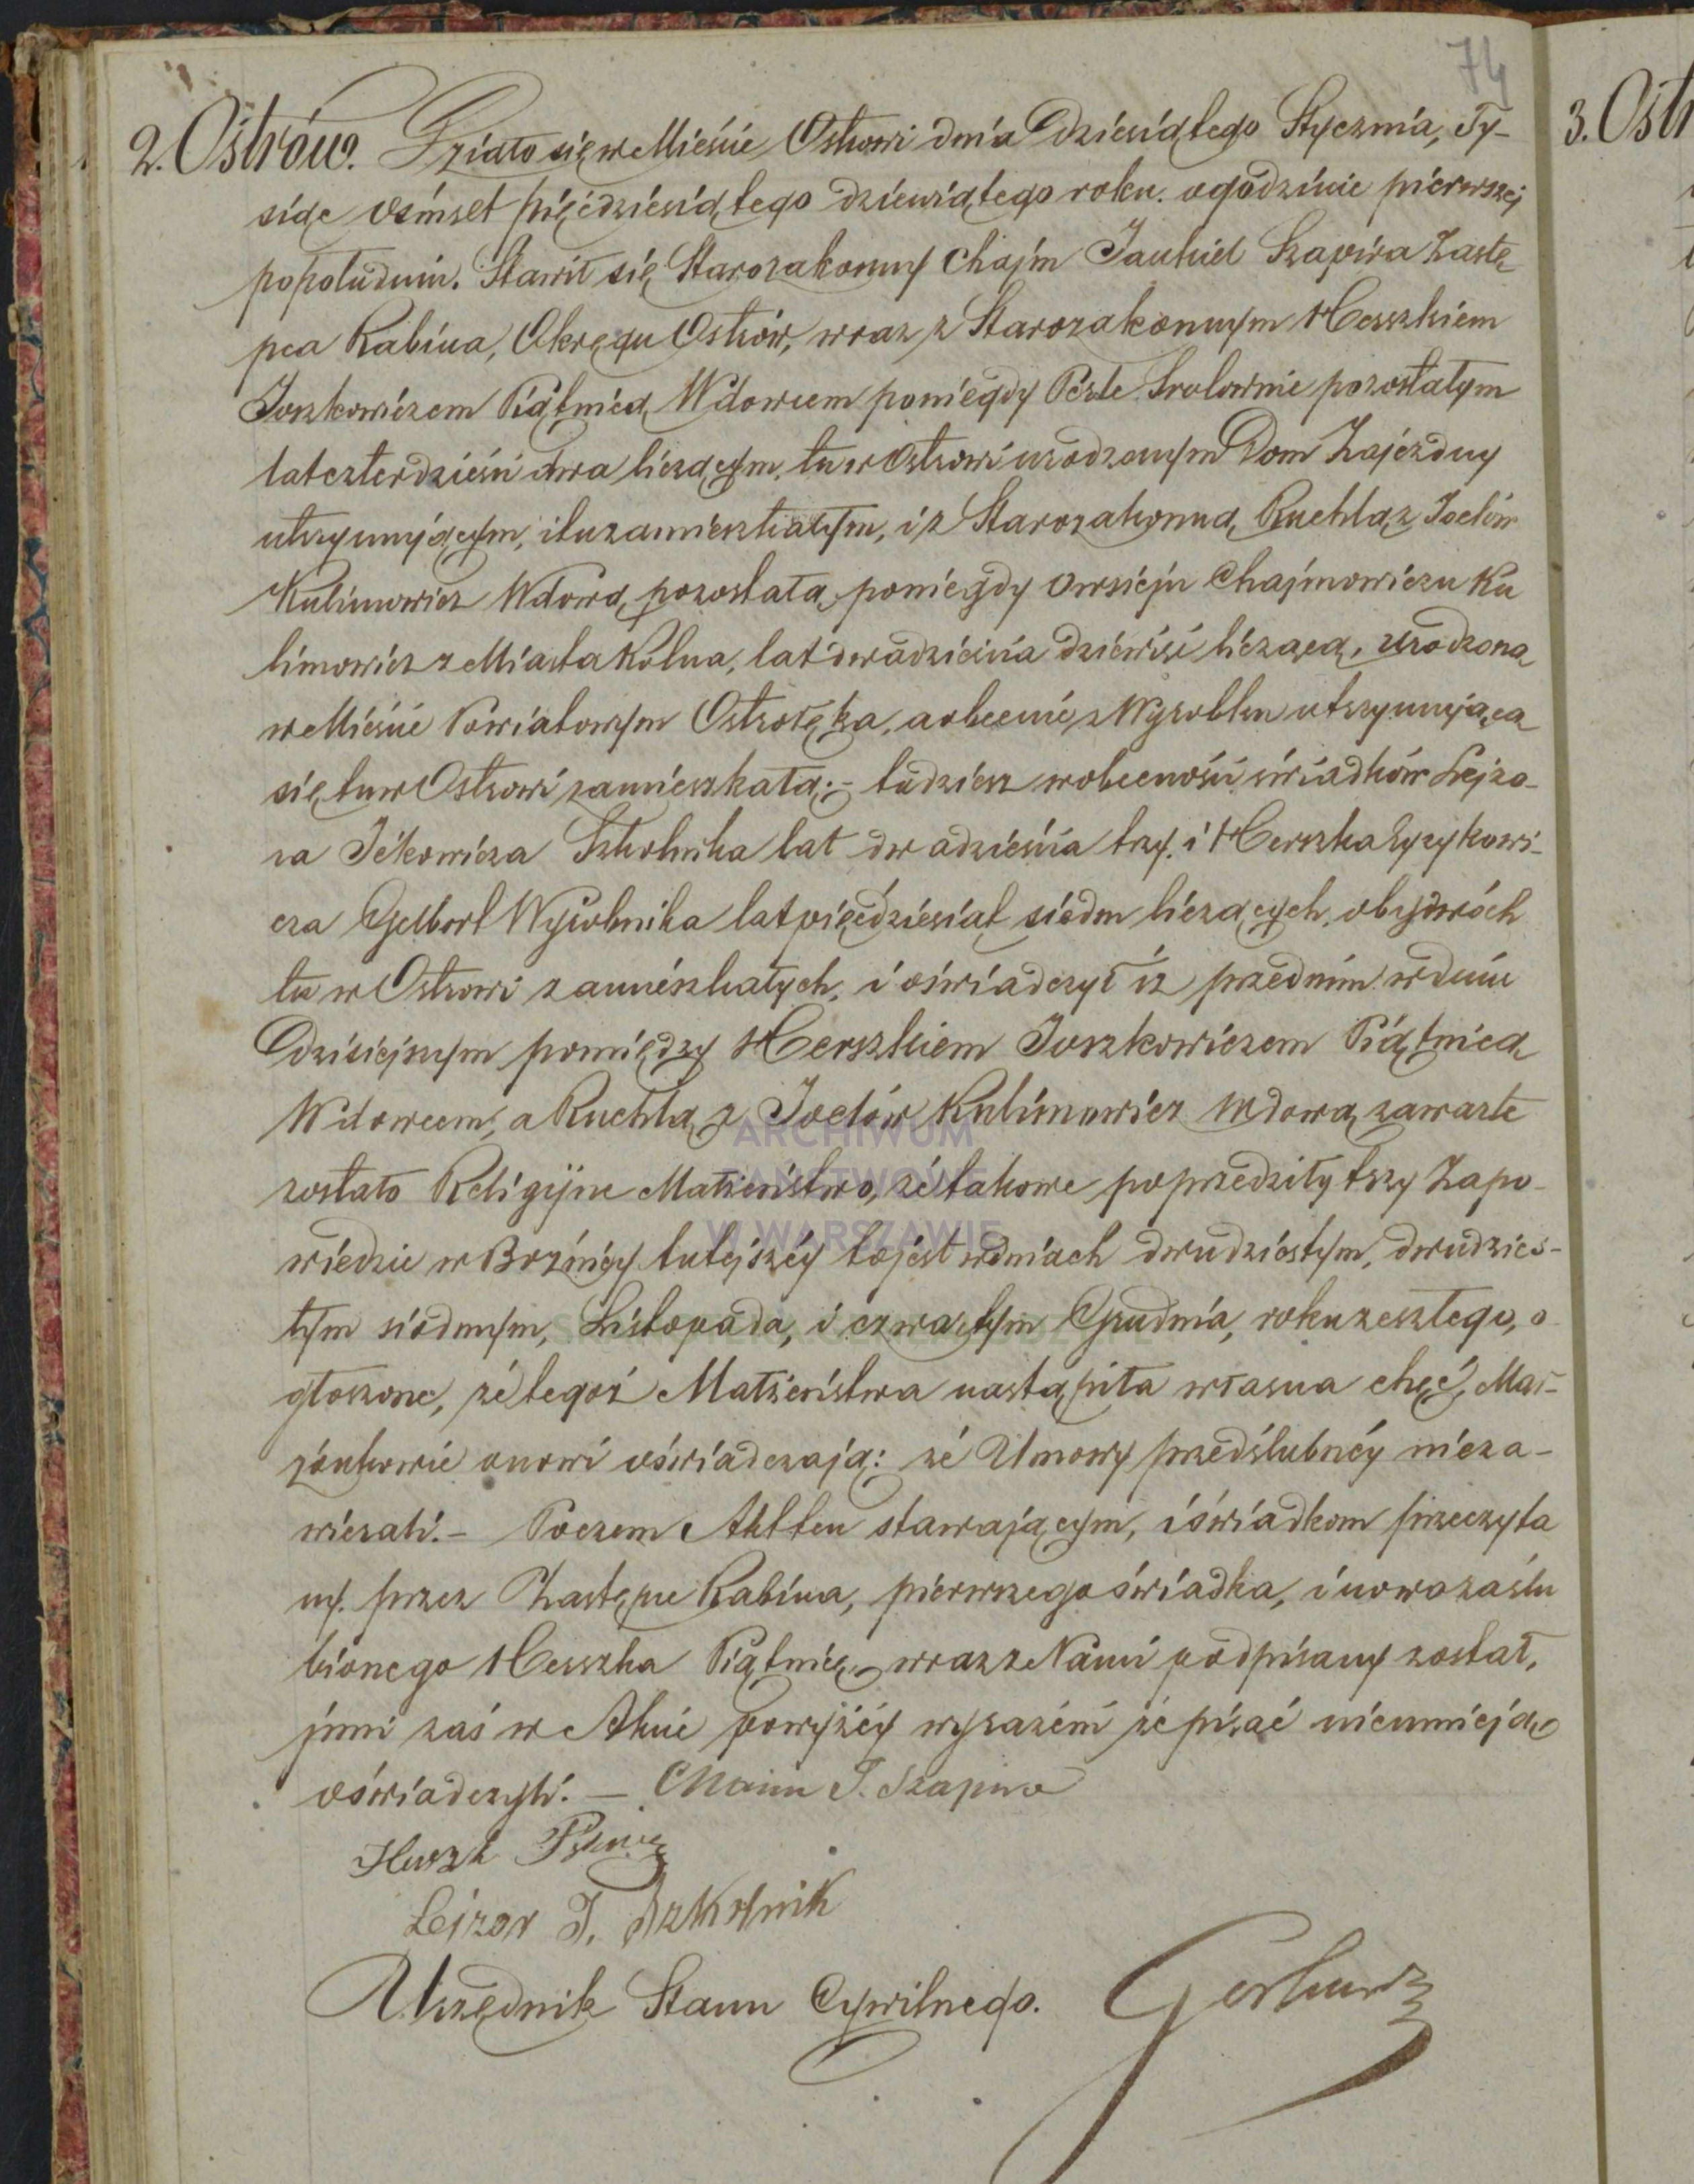 74
2. Ostrów. Działo się w Mieście Ostrowi dnia Dziesiątego Stycznia, Ty-
siąc ośmset pięćdziesiątego dziewiątego roku. o godzinie pierwszej
popołudniu. Stawił się Starozakonny Chajm Jankiel Szapira Zastę
pca Rabina, Okręgu Ostrów, wraz z Starozakonnym Herszkiem
Joszkowiczem Piątnicą Wdowcem po niegdy Peszle Srolownie pozostałym
lat czterdzieści dwa liczącym, tu w Ostrowi urodzonym Dom Zajezdny
utrzymującym, i tu zamieszkałym, i z Starozakonną Ruchlą z Joelów
Kulimowicz Wdową pozostałą po niegdy Owsieju Chajmowiczu Ku
limowicz z Miasta Kolna, lat dwadzieścia dziewięć liczącą, urodzoną
w Mieście Powiatowym Ostrołęka, a obecnie z Wyrobku utrzymującą
się tu w Ostrowi zamieszkałą:- tudzież w obecności świadków Lejzo-
ra Ickowicza Szkolnika lat dwadzieścia trzy. i Herszka Zyzykowi-
cza Gelbort Wyrobnika lat pięćdziesiąt siedm liczących, obydwóch
tu w Ostrowi zamieszkałych, i oświadczył iż przed nim w dniu
Dzisiejszym pomiędzy Herszkiem Joszkowiczem Piątnicą
Wdowcem, a Ruchlą z Joelów Kulimowicz Wdową zawarte
zostało Religijne Małżeństwo, że takowe poprzedziły trzy Zapo-
wiedzie w Bożnicy tutejszéy to jest w dniach dwudziestym, dwudzies-
tym siódmym, Listopada, i czwartym Grudnia, roku zeszłego, o
głoszone, że tegoż Małżeństwa nastąpiła własna chęć, Mał-
żonkowie nowi oświadczają: że Umowy przedślubnéy nieza-
wierali.- Poczem Akt ten stawającym, i świadkom przeczyta
ny. przez Zastępcę Rabina, pierwszego świadka, i nowozaślu
bionego Herszka Piątnicę wraz z Nami podpisany został,
inni zaś w Akcie powyżéy wyrażeni że pisać nieumieją
oświadczyli. — Chaim J. Szapira
Herszk
Lejzor I. Szkolnik
Urzędnik Stanu Cywilnego.
3. Ostr
ARCHIWUM
PAŃSTWOWE
W WARSZAWIE